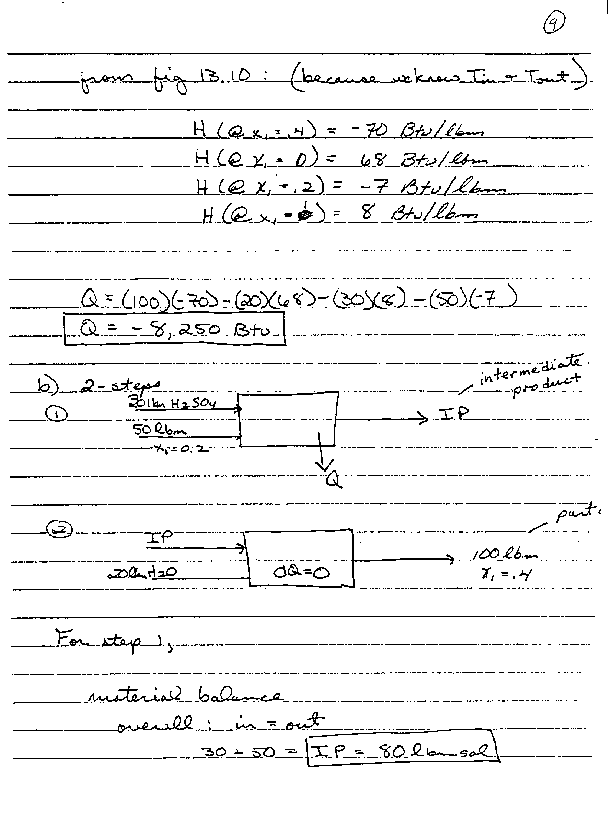 9
from fig 13.10 : (because we know Tin + Tout)
H (@ x₁ = .4) = -70 Btu/lbm
H (@ x₁ = 0) = 68 Btu/lbm
H (@ x₁ = .2) = -7 Btu/lbm
H (@ x₁ = ) = 8 Btu/lbm
Q = (100)(-70) - (20)(68) - (30)(8) - (50)(-7)
Q = -8,250 Btu
b) 2-steps
intermediate product
① 30 lbm H2SO4
IP
50 lbm
x₁ = 0.2
Q
② IP
part
100 lbm
20 lbm H2O
Q = 0
x₁ = .4
For step 1,
material balance
overall : in = out
30 + 50 = IP = 80 lbm sol